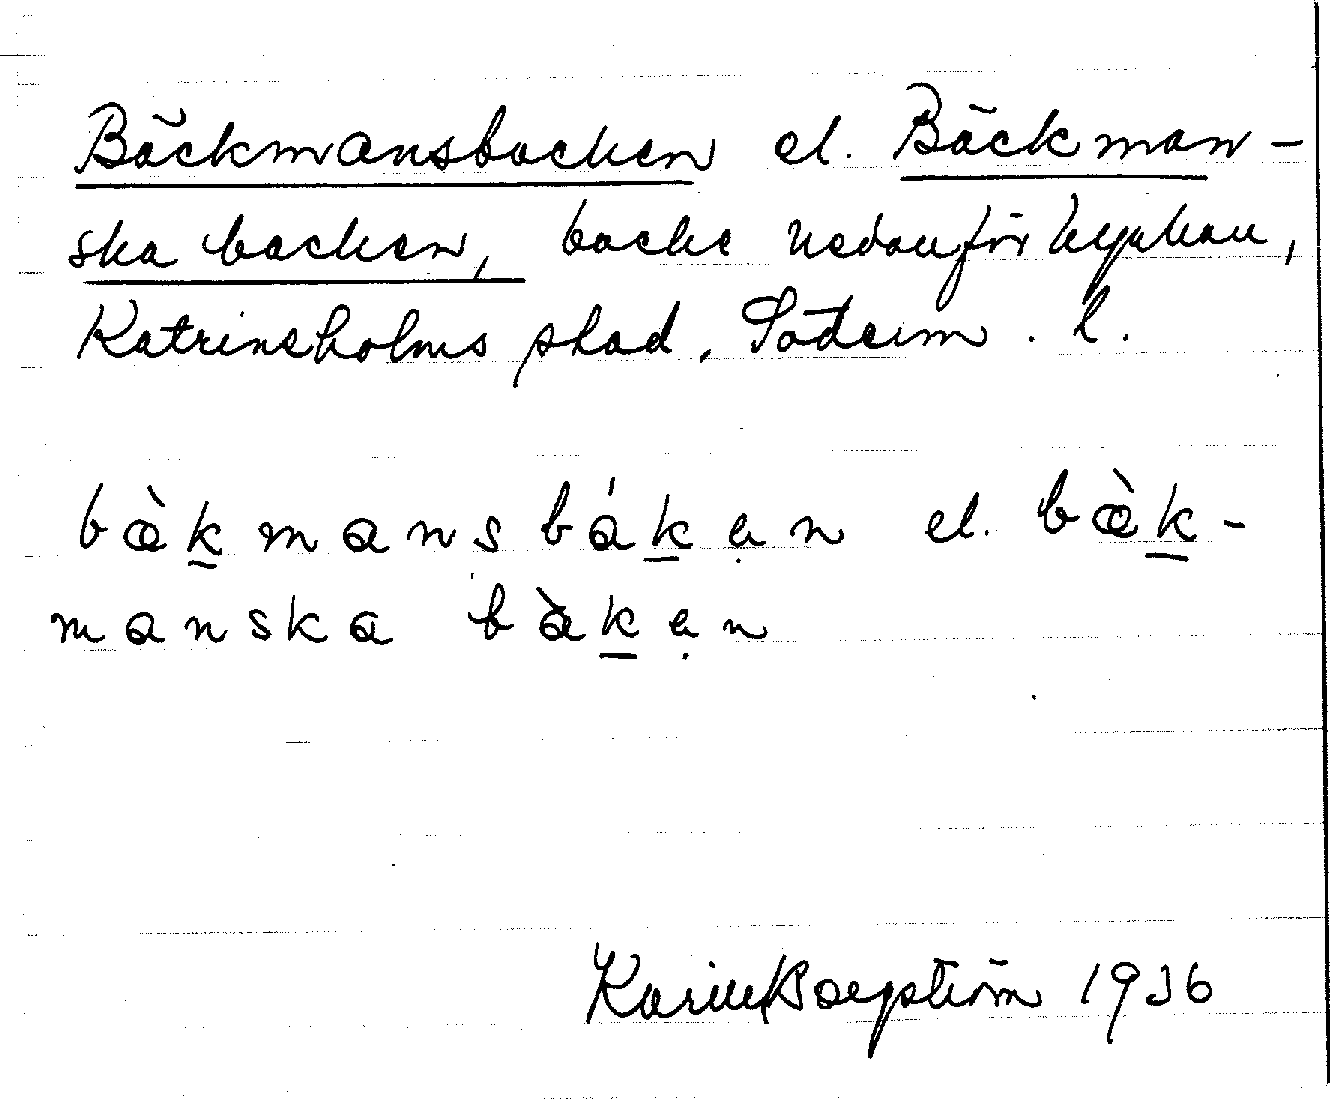 Bäckmansbacken el. Bäckman-
ska backen, backe nedanför kyrkan,
Katrineholms stad. Söderm. l.
bæ̀kmansbákẹn el. bæ̀k-
manska bàkẹn
Karin Bergström 1936